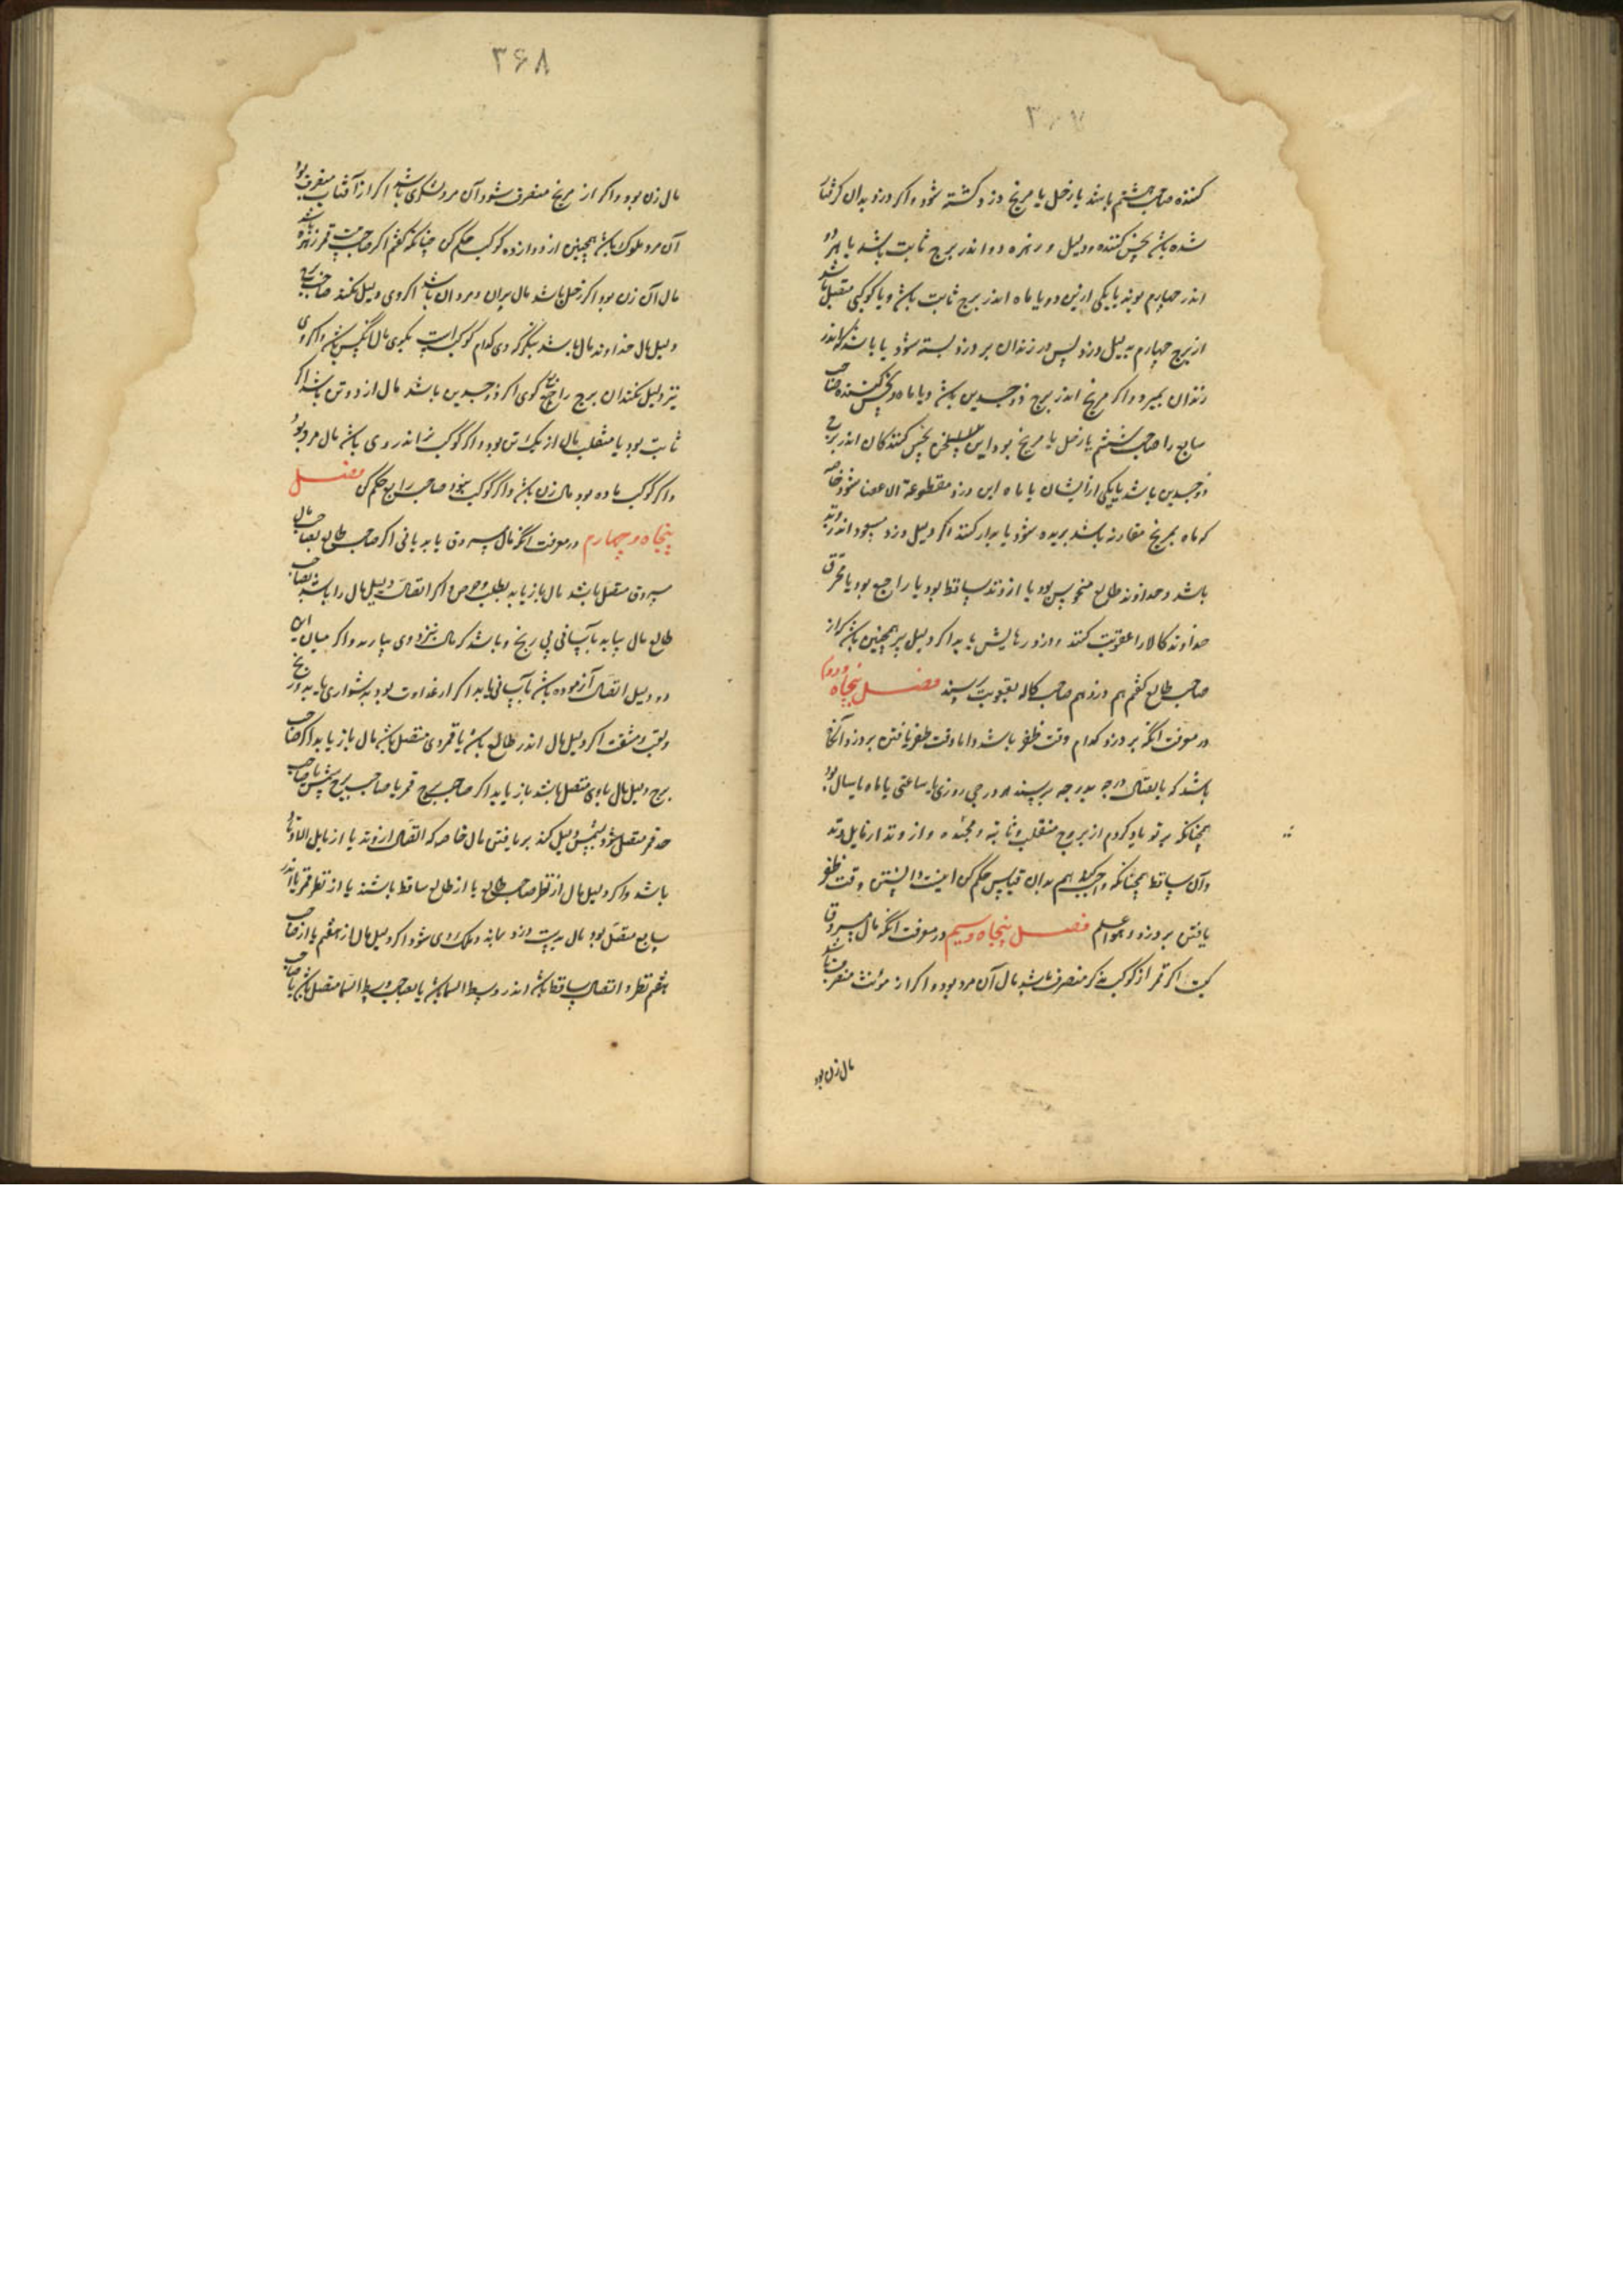 ۳۶۷
کننده صاحب هشتم باشد یا زحل یا مریخ دزد کشته شود و اکر دزد بدان کرفتار
شده باشد نحس کننده دلیل دزد زهره و اندر برج ثابت باشد یا هر دو
اندر چهارم بوند یا یکی ازین دو یا ماه اندر برج ثابت باشد و یا کوکبی متصل باشد
از برج چهارم بدلیل دزد پس در زندان بر دزد بسته شود یا باشد که اندر
زندان بمیرد و اکر مریخ اندر برج ذو جسدین باشد و یا ماه و نحس کننده صاحب
سابع را صاحب ششم یا زحل یا مریخ بود این نحس کنندکان اندر برج
ذو جسدین باشد یا یکی ازایشان یا ماه این دزد مقطوعة الاعضا شود خاصه
که ماه بمریخ مقارنه باشد بریده شود یا بردار کنند اکر دلیل دزد مسعود اندر وتد
باشد و خداوند طالع منحوس بود یا از وتد ساقط بود یا راجع بود یا محترق
خداوند کالا را عقوبت کنند و دزد رهایش یابد اکر دلیل بر همچنین باشد که از
صاحب طالع کفتم هم دزد هم صاحب کالا بعقوبت رسند فصل پنجاه و دوم
در معرفت انکه بر دزد کدام وقت ظفر باشد و اما وقت ظفر یافتن بر دزد آنکاه
باشد که باتصال درجه بدرجه برسند هر درجی روزی یا ساعتی یا ماه یا سال بود
همچنانکه بر تو یاد کردم از بروج منقلب و ثابته و مجسده و از وتد از مایل وتد
و آن ساقط همچنانکه هم بدان قیاس حکم کن اینست دانستن وقت ظفر
یافتن بر دزد و هو اعلم فصل پنجاه و سیم در معرفت انکه مال مسروق
کیست اکر قمر از کوکب مذکر منصرف شد مال آن مرد بود و اکر از مؤنث منصرف باشد
مال زن بود
۳۶۸
مال زن بود و اکر از مریخ منصرف شود آن مرد لشکری باشد اکر از آفتاب منصرف بود
آن مرد ملوک باشد همچنین از دوازده کوکب حکم کن چنانکه کفتم اکر صاحب بیت قمر زهره باشد
مال آن زن بود اکر زحل باشد مال پیران و مردان باشد اکر وی دلیل نکند صاحب برج
دلیل مال خداوند مال باشد بنکر که وی کدام کوکب است بکوی مال آنکس باشد و اکر وی
نیز دلیل نکند آن برج را کوی اکر ذو جسدین باشد مال از دو تن باشد اکر
ثابت بود یا منقلب مال از یک تن بود و اکر کوکب نر اندر وی باشد مال مرد بود
و اکر کوکب ماده بود مال زن باشد و اکر کوکب نبود صاحب رابع حکم کن فصل
پنجاه و چهارم در معرفت انکه مال مسروق یابد یا نی اکر صاحب طالع بصاحب مال
مسروق متصل باشد مال باز یابد بطلب و حرص و اکر اتصال دلیل مال را باشد بصاحب
طالع مال بیابد بآسانی بی رنج و باشد که مال بنزد وی بیارند و اکر میان این
دو دلیل اتصال آزموده باشد بآسانی یابد اکر از عداوت بود بدشواری یابد و رنج
و تعب و مشقت اکر دلیل مال اندر طالع باشد یا قمر وی متصل باشد مال باز یابد اکر صاحب
برج دلیل مال با وی متصل باشد باز یابد اکر صاحب برج قمر یا صاحب برج شمس یا صاحب
حد قمر متصل شود بشمس دلیل کند بر یافتن مال خاصه که اتصال از وتد یا از مایل الاوتاد
باشد و اکر دلیل مال از نظر صاحب طالع یا از طالع ساقط باشند یا از نظر قمر یا اندر
سابع متصل بود مال بدست دزد بماند و ملک وی شود اکر دلیل مال از هفتم یا از صاحب
هفتم نظر و اتصال ساقط باشد اندر وسط السما باشد یا بصاحب وسط السما متصل باشد یا صاحب